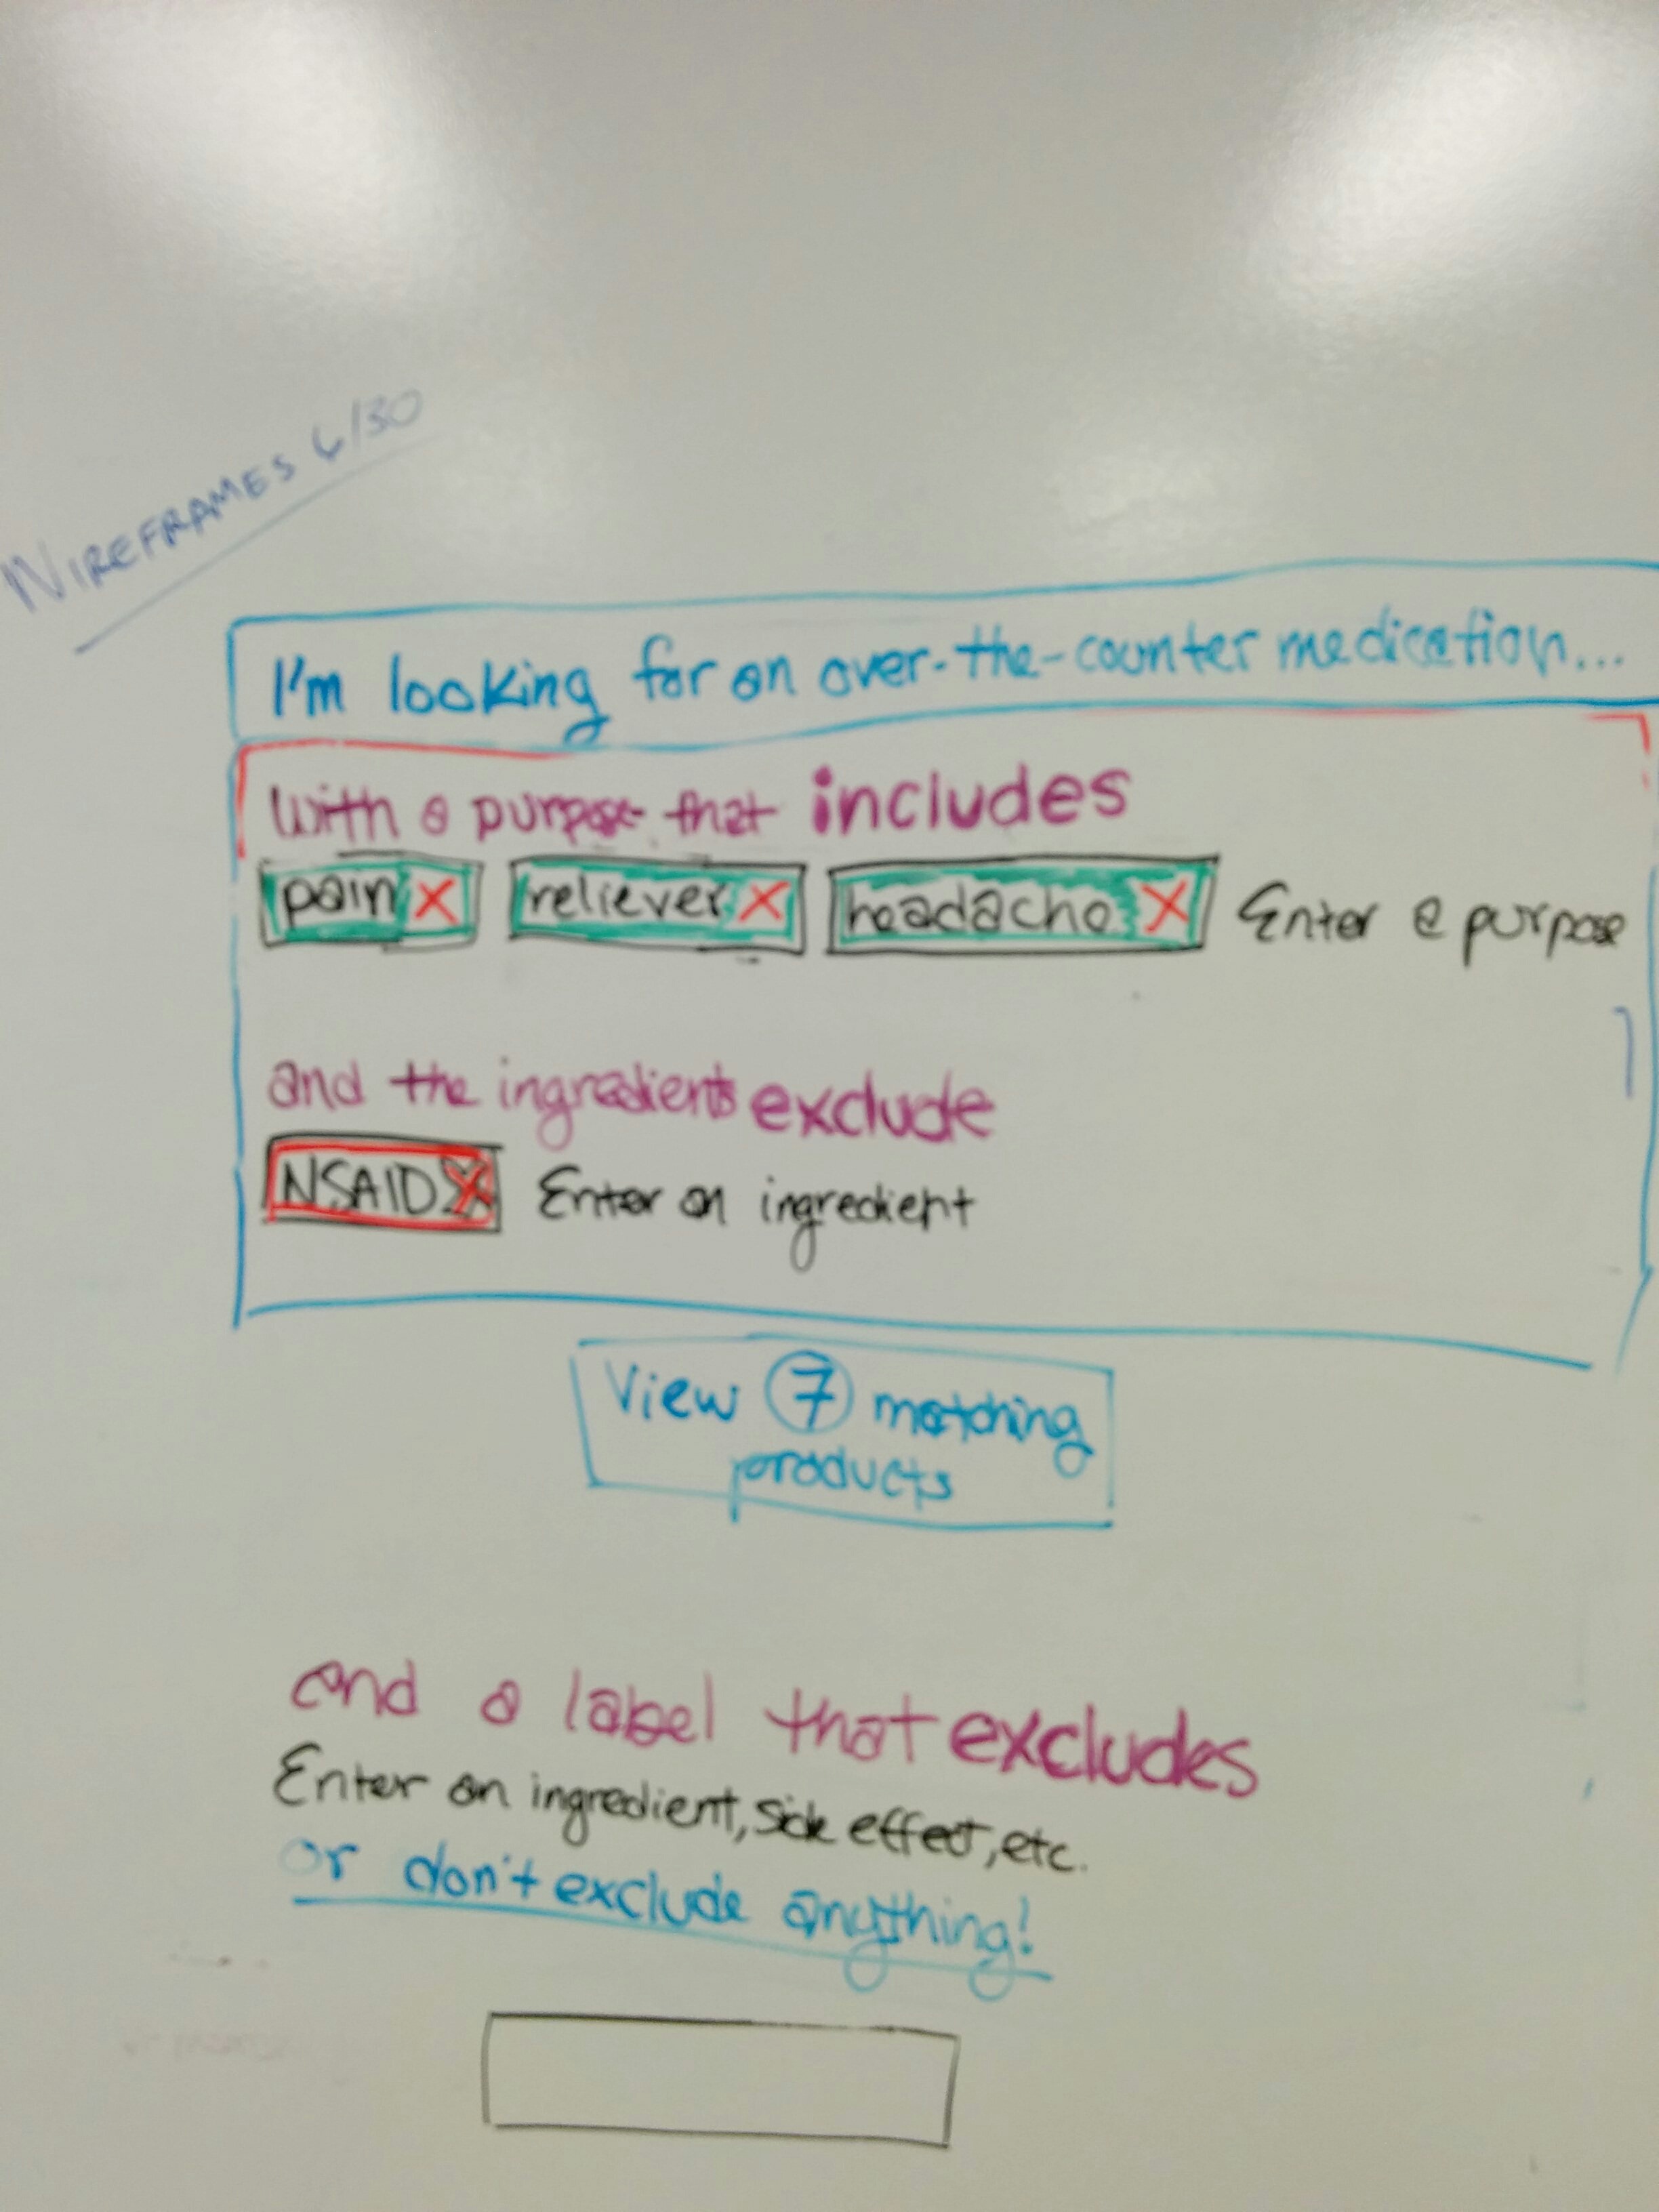 WIREFRAMES 6/30
I'm looking for an over-the-counter medication...
with a purpose that includes
pain X reliever X headache X Enter a purpose
and the ingredients exclude
NSAID X Enter an ingredient
View 7 matching
products
and a label that excludes
Enter an ingredient, side effect, etc.
or don't exclude anything!